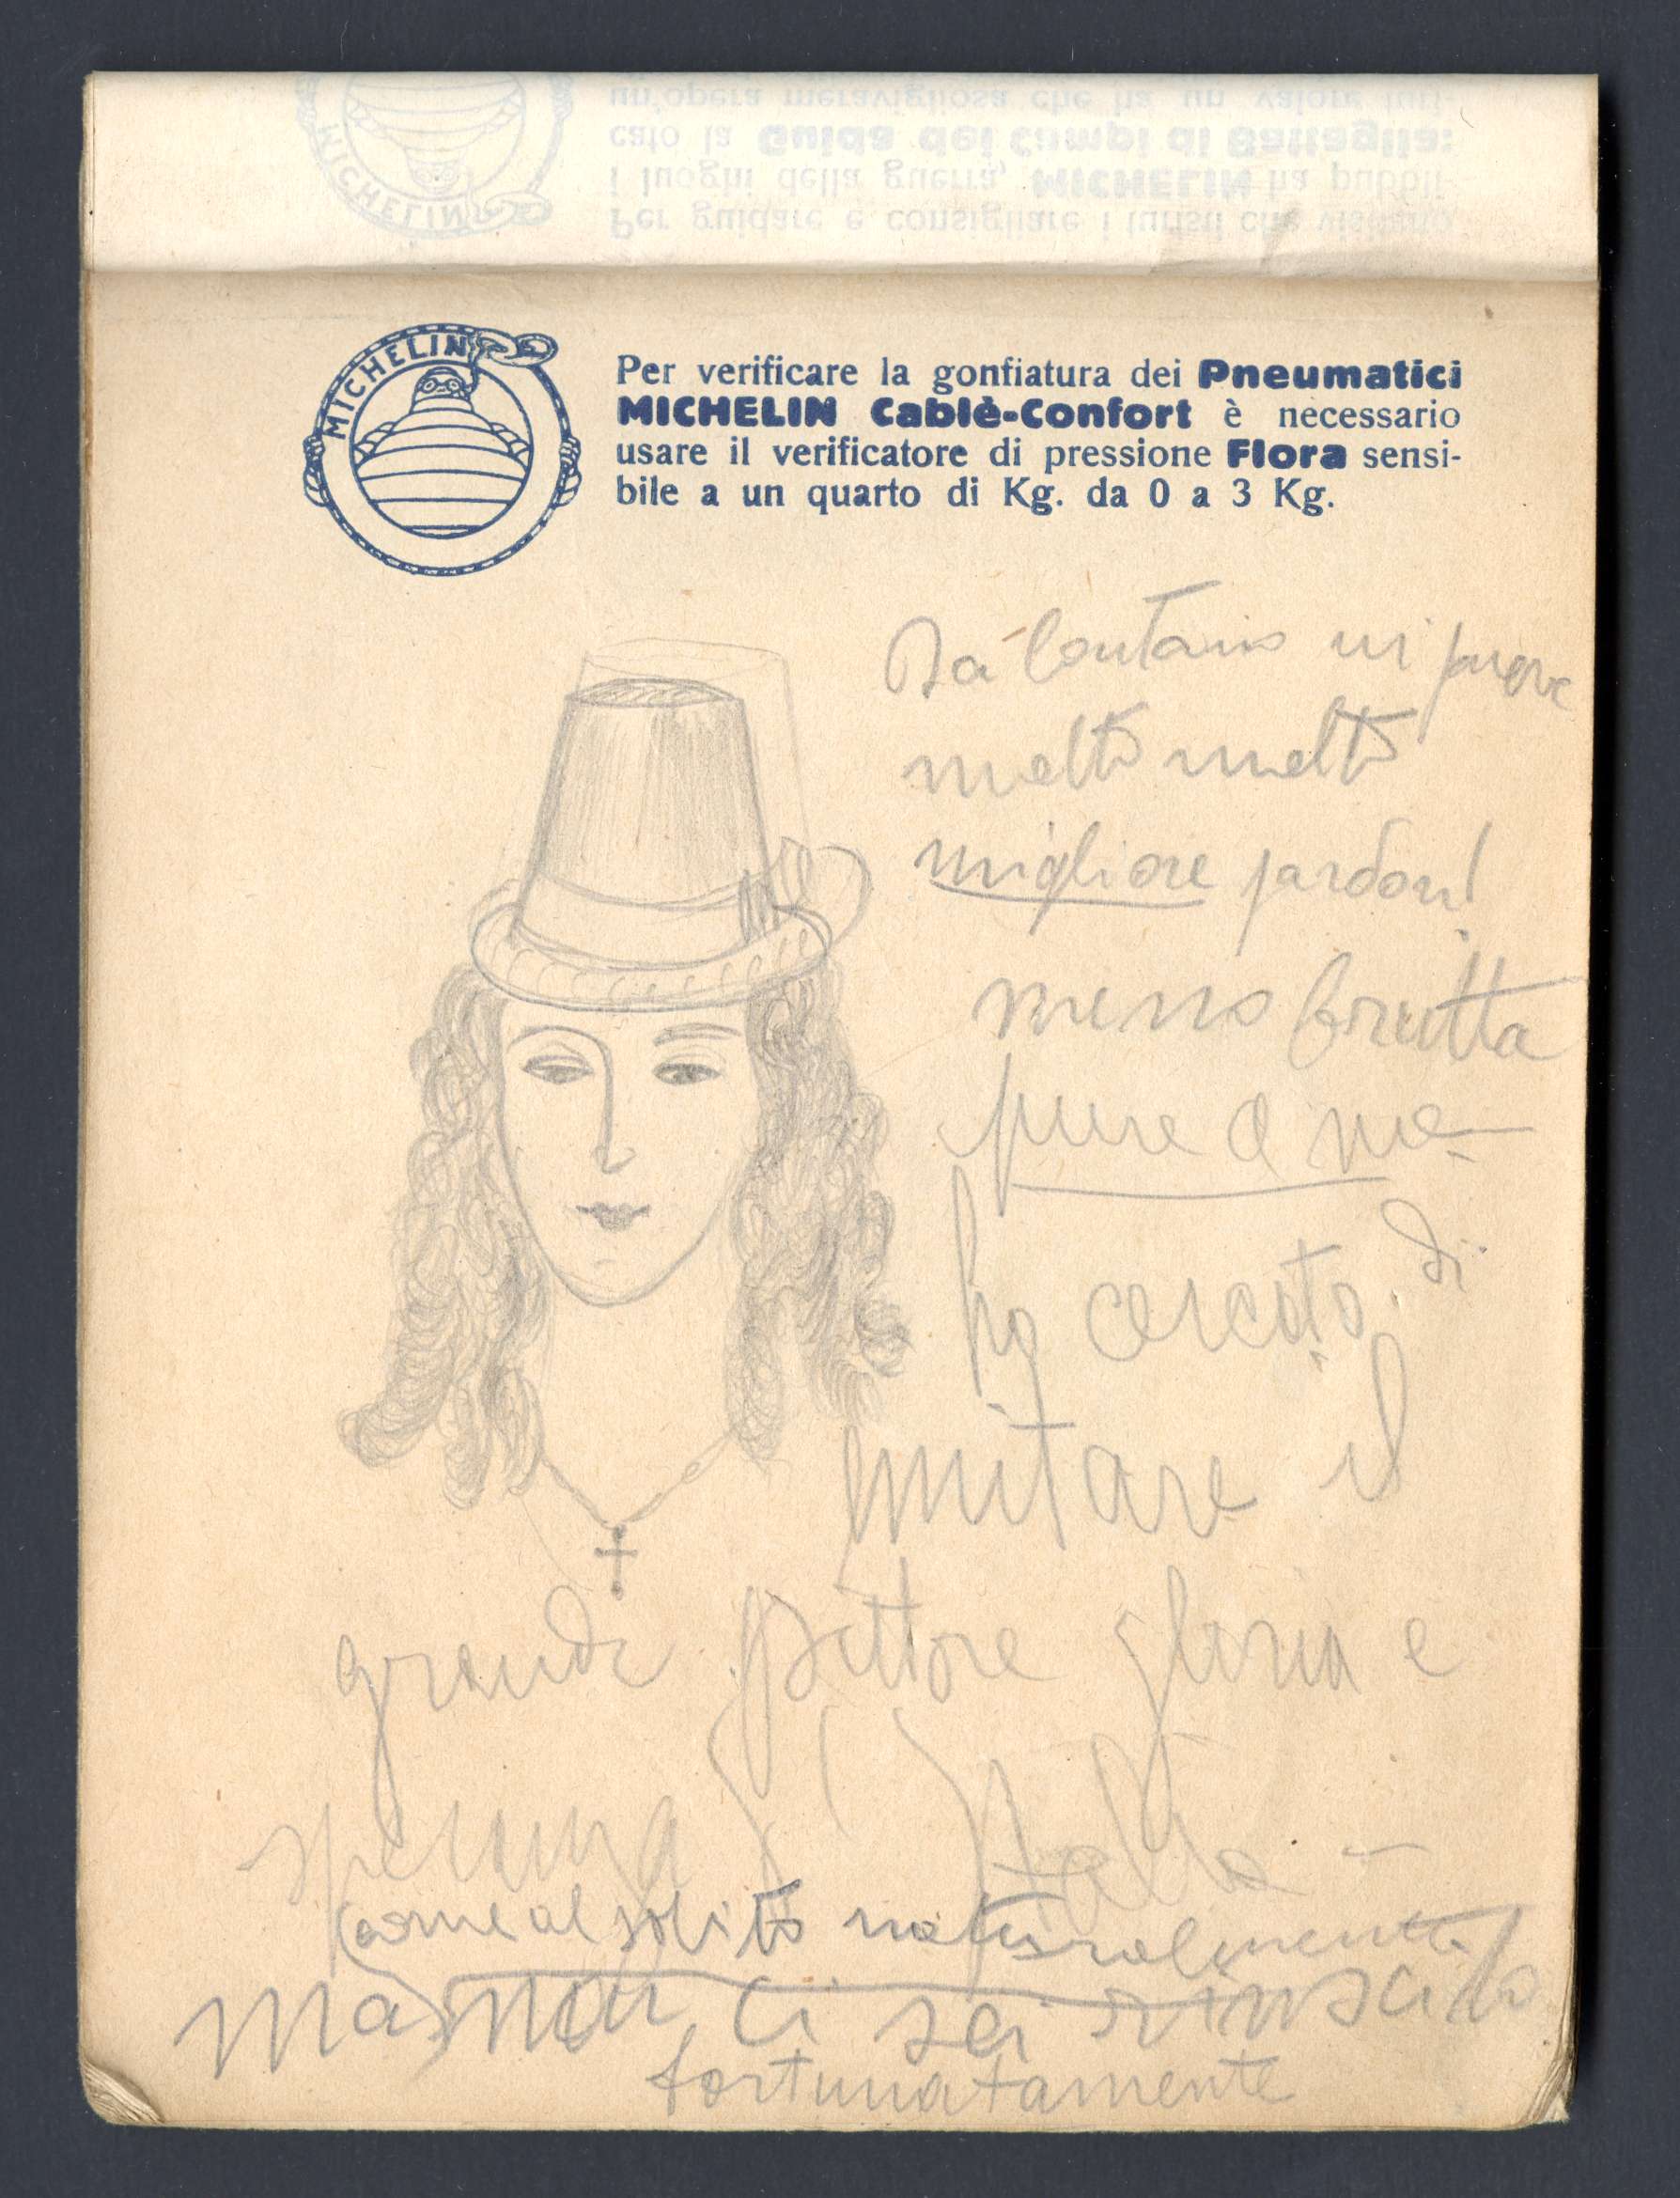 un'opera meravigliosa che ha un valore turi-
cato la Guida dei Campi di Battaglia:
i luoghi della guerra, MICHELIN ha pubbli-
Per guidare e consigliare i turisti che visitano
MICHELIN
MICHELIN
Per verificare la gonfiatura dei Pneumatici
MICHELIN Cablè-Confort è necessario
usare il verificatore di pressione Flora sensi-
bile a un quarto di Kg. da 0 a 3 Kg.
Da lontano mi pare
molto molto
migliore pardon!
meno brutta
pure a me
ho cercato di
imitare il
grande pittore gloria e
speranza d'Italia -
(come al solito naturalmente)
ma non ci sei riuscito
fortunatamente